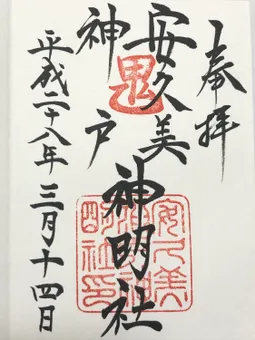 奉拝
安久美
神戸
神明社
平成二十八年三月十四日
鬼
安久美
神戸神
明社印